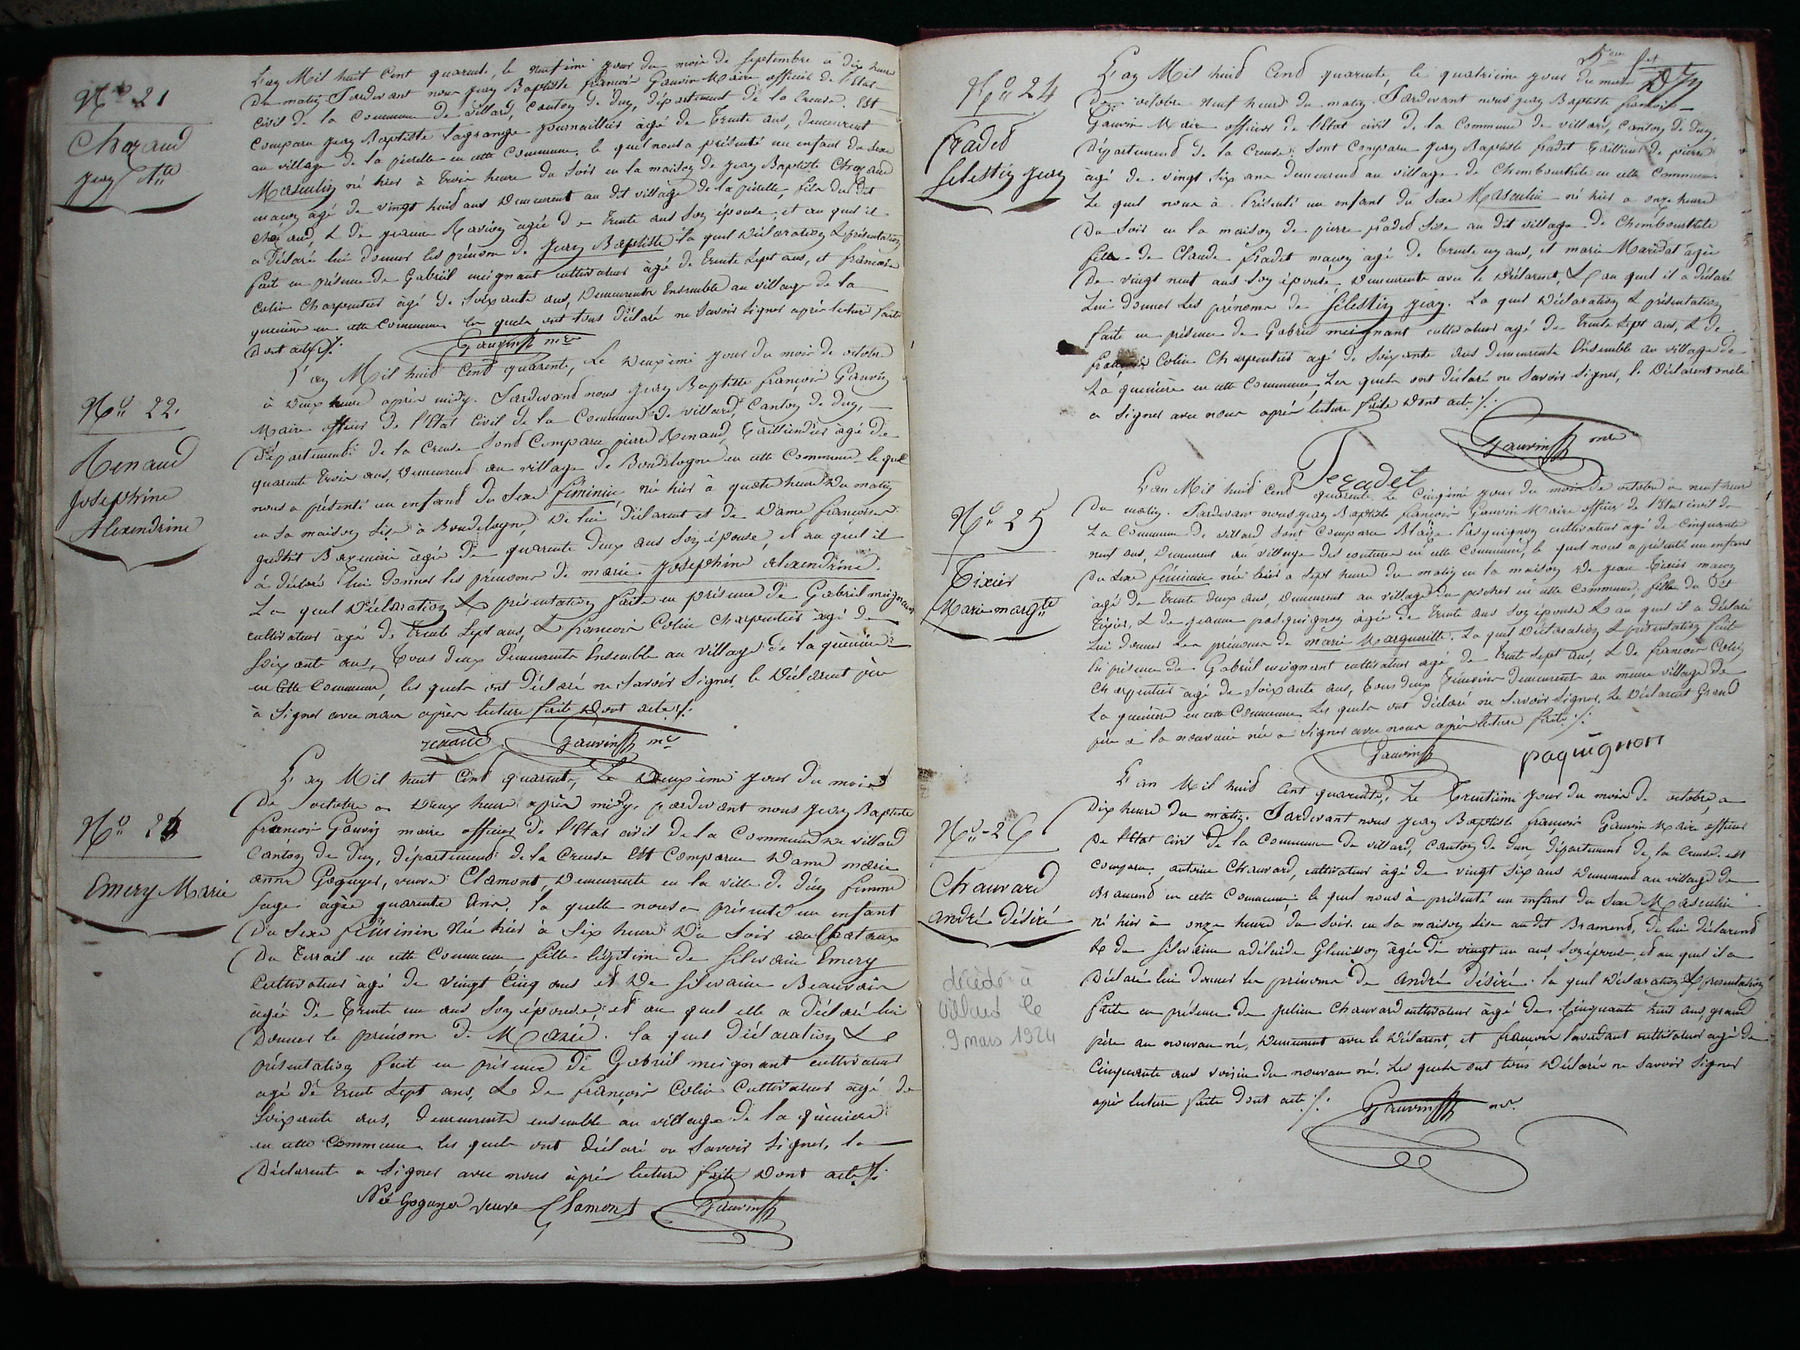 N° 21
Chazaud
Jean Bte
L'an Mil huit Cent quarente, le neufieme jour du mois de Septembre à dix heures
Du matin Pardevant nous jean Baptiste françois Gauvin Maire officier de l'Etat
Civil de la Commune de Villard, Canton de Dun, département de la Creuse. Est
Comparu jean Baptiste Lagrange journaillier âgé de Trente ans, demeurent
au village de la en cette Commune, le quel nous a présenté un enfant du Sexe
Masculin né hier à Trois heure du Soir en la maison de jean Baptiste Chazaud
maçon âgé de vingt huit ans Demeurent au dit village de la fils du dit
Chazaud, & de jeanne âgée de Trente ans Son épouse, et au quel il
a Déclaré lui donner les prénom de jean Baptiste la quel Déclaration & présentation
faite en présence de Gabriel meignant cultivateur âgé de Trente Sept ans, et francois
Colin Charpentier âgé de Soixante ans, Demeurents Ensemble au village de la
quenière en cette Commune les quels ont tous déclaré ne Savoir Signer après lecture faite
Dont acte ./.
Gauvin mre
N° 22.
Renaud
Josephine
Alexendrine
L'an Mil huid Cent quarente, Le Deuxième jour du mois de octobre
à Deux heure après midy. Pardevant nous jean Baptiste françois Gauvin
Maire officier de l'Etat Civil de la Commune de Villard, Canton de Dun,
Département de la Creuse Sont Comparu pierre Renaud, Taillendier âgé de
quarente Trois ans, Demeurent au village de Boudelogne en cette Commune le quel
nous a présenté un enfand du Sexe féminin né hier à quatre heure du matin
en Sa maison Sise à Boudelogne, De lui Déclarent et de Dame francoise
âgée De quarente Deux ans Son épouse, et au quel il
à déclaré lui donner les prénoms de marie Josephine alexendrine.
La quel Déclaration & présentation faite en présence de Gabriel meignant
cultivateur âgé de Trente Sept ans, & francois Colin Charpentier âgé de
Soixante ans, Tous deux Demeurents Ensemble au village de la quenière
en Cette Commune, les quels ont déclaré ne Savoir Signer. le Déclarent père
à Signer avec nous après lecture faite Dont acte ./.
renaud Gauvin mre
N° 23
Emery Marie
L'an Mil huit Cent quarente, Le Deuxième jour du mois
De octobre a Deux heure après midy. pardevant nous jean Baptiste
francois Gauvin maire officier de l'Etat civil de la Commune de Villard
Canton de Dun, Département de la Creuse Est Comparue Dame marie
anne Goguyer, veuve Clamont, Demeurente en la ville de Dun femme
Sage âgée quarente Ans, la quelle nous a présenté un enfant
Du Sexe féminin Née hier à Six heure Du Soir au Chateaux
Du Terrail en cette Commune fille légitime de Silvain Emery
Cultivateur âgé de vingt Cinq ans et De Silvaine Beauvais
âgée de Trente un ans Son épouse, et au quel elle a Déclaré lui
Donner le prénom de Marie. la quel Déclaration & &
présentation fait en présence de Gabriel meignant cultivateur
âgé de Trente Sept ans, & de françois Colin Cultivateur âgé de
Soixente ans, Demeurents ensemble au village de la quenière
en cette Commune les quels ont déclaré ne Savoir Signer, la
Déclarente a Signer avec nous après lecture faite Dont acte ./.
Née Goguyer veuve Clamont Gauvin
N° 24
Fradet
Selestin jean
L'an Mil huid Cend quarente, le quatrième jour du mois
De octobre neuf heure du matin. Pardevant nous jean Baptiste francois
Gauvin Maire officier de l'Etat civil de la Commune de Villard, Canton de Dun
Département de la Creuse. Sont Comparu jean Baptiste fradet Tailleur de pierre
âgé de vingt Six ans demeurend au village de Chemboustrite en cette Commune
Le quel nous à Présenté un enfant du Sexe Masculin né hier a onze heure
Du Soir en la maison de pierre fradet Sise au dit village de Chemboustrite
fils de Claude fradet maçon âgé de Trente un ans, et marie Maridat âgée
De vingt neuf ans Son épouse, Demeurente avec le Déclarent, & au quel il a déclaré
Lui donner Les prénoms de Sélestin jean. La quel Déclaration & présentation
faite en présence de Gabriel meignant cultivateur âgé de Trente Sept ans, & de
françois Colin Charpentier âgé de Soixante ans demeurents Ensemble au village de
La quenière en cette Commune, Les quels ont déclaré ne Savoir Signer, le Déclarent oncle
a Signer avec nous après lecture faite Dont acte ./.
Gauvin mre
fradet
N° 25
Tixier
Marie margte
L'an Mil huid Cent quarente Le Cinqième jour du mois de octobre a neuf heure
Du matin. Pardevant nous jean Baptiste françois Gauvin Maire officier de l'Etat civil de
La Commune de Villard Sont Comparu Blaise Pasquignon cultivateur âgé de Cinquante
neuf ans, Demeurent au village des coutures en cette Commune, le quel nous a présenté un enfant
Du Sexe féminin née hier a Sept heure du matin en la maison de jean Tixier maçon
âgé de Trente Deux ans, Demeurent au village du en cette Commune, fille du Dit
Tixier, & de jeanne pasquignon âgée de Trente ans Son épouse & au quel il a déclaré
Lui donner Les prénoms de marie Marguerite. La quel Déclaration & présentation faite
En présence de Gabriel meignant cultivateur âgé de Trente Sept ans, & de francois Colin
Charpentier âgé de Soixante ans, Tous deux Témoins demeurent au même village de
La quenière en cette Commune Les quels ont déclaré ne Savoir Signer, Le Déclarent Grand
père a la nouvaux née a Signer avec nous après lecture faite ./.
Gauvin paquignon
N° 26
Chauvard
André Désiré
décédé à
Villard le
9 mars 1924
L'an Mil huid Cent quarente, Le Trentième jour du mois de octobre, a
Dix heure du matin. Pardevant nous jean Baptiste françois Gauvin Maire officier
De l'Etat Civil de la Commune de Villard, Canton de Dun, Département de la Creuse. est
Comparu antoine Chauvard, cultivateur âgé de vingt Six ans Demeurend au village de
Bramend en cette Commune le quel nous à présenté un enfant du Sexe Masculin
né hier à onze heure du Soir en Sa maison Sise au dit Bramend, de lui déclarend
& de Silvaine adélaide âgée de vingt un ans, Son épouse, et au quel il a
Déclaré lui donner les prénoms de André Désiré. la quel Déclaration & présentation
faite en présence de julien Chauvard cultivateur âgé de Cinquante huit ans, grand
père au nouveau né, Demeurent avec le Déclarent, et francois cultivateur âgé de
Cinquante ans voisin du nouveau né. Les quels ont tous Déclaré ne Savoir Signer
après lecture faite Dont acte ./.
Gauvin mre